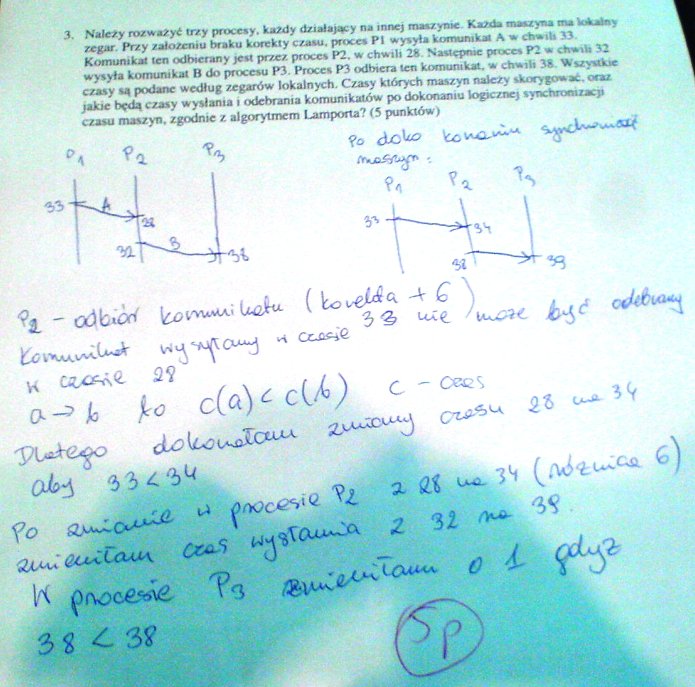 3. Należy rozważyć trzy procesy, każdy działający na innej maszynie. Każda maszyna ma lokalny
zegar. Przy założeniu braku korekty czasu, proces P1 wysyła komunikat A w chwili 33.
Komunikat ten odbierany jest przez proces P2, w chwili 28. Następnie proces P2 w chwili 32
wysyła komunikat B do procesu P3. Proces P3 odbiera ten komunikat, w chwili 38. Wszystkie
czasy są podane według zegarów lokalnych. Czasy których maszyn należy skorygować, oraz
jakie będą czasy wysłania i odebrania komunikatów po dokonaniu logicznej synchronizacji
czasu maszyn, zgodnie z algorytmem Lamporta? (5 punktów)
P1 P2 P3
33 A 28
32 B 38
Po doko
maszyn:
P1 P2 P3
33 34
38 39
P2 - odbiór komunikatu (korekta + 6)
Komunikat wysyłany w czasie 33 nie może być odebrany
w czasie 28
a → b to c(a) < c(b) c - czas
Dlatego dokonałam zmiany czasu 28 na 34
aby 33 < 34
Po zmianie w procesie P2 z 28 na 34 (różnica 6)
zmieniłam czas wysłania z 32 na 38.
W procesie P3 zmieniłam o 1 gdyż
38 < 38
5p